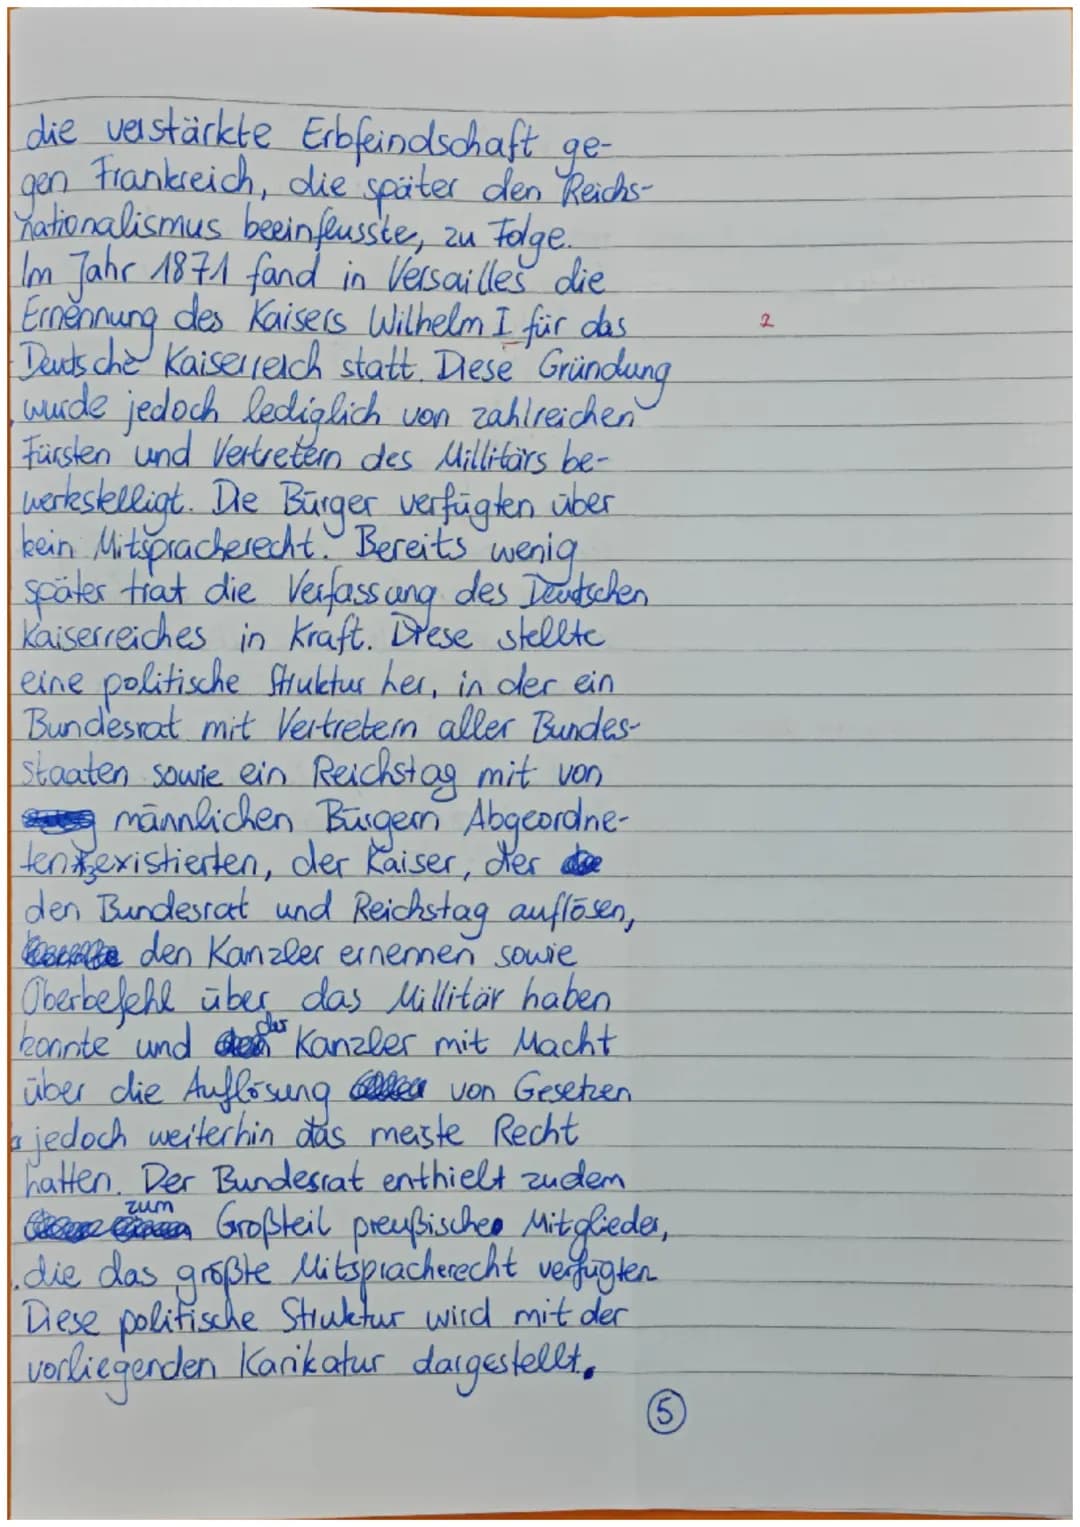 die verstärkte Erbfeindschaft ge-
gen Frankreich, die später den Reichs-
nationalismus beeinfeusste, zu Folge.
Im Jahr 1871 fand in Versailles die
Ernennung des Kaisers Wilhelm I für das
2
Deutsche Kaiserreich statt. Diese Gründung
wurde jedoch lediglich von zahlreichen
Fürsten und Vertretern des Millitärs be-
werkstelligt. Die Bürger verfügten über
kein Mitspracherecht. Bereits wenig
später trat die Verfassung des Deutschen
Kaiserreiches in Kraft. Diese stellte
eine politische Struktur her, in der ein
Bundesrat mit Vertretern aller Bundes-
staaten sowie ein Reichstag mit von
männlichen Bürgern Abgeordne-
ten existierten, der Kaiser, der
den Bundesrat und Reichstag auflösen,
den Kanzler ernennen sowie
Oberbefehl über das Millitär haben
konnte und der Kanzler mit Macht
über die Auflösung von Gesetzen
jedoch weiterhin das meiste Recht
hatten. Der Bundesrat enthielt zudem
zum Großteil preußische Mitglieder,
die das größte Mitspracherecht verfügten
Diese politische Struktur wird mit der
vorliegenden Karikatur dargestellt.
5